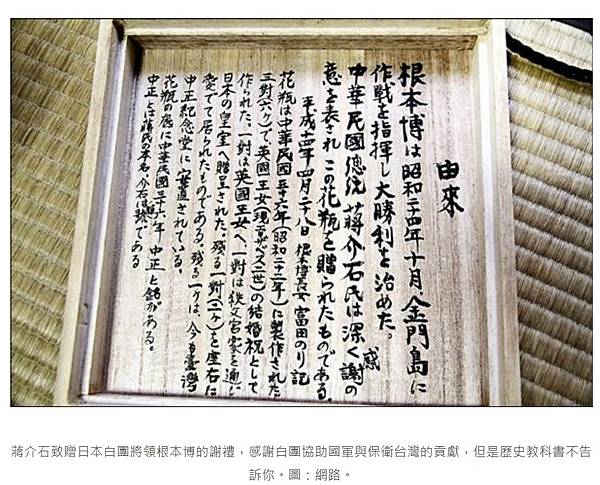 由來
根本博は昭和二十四年十月、金門島に
作戦を指揮し大勝利を治めた。
中華民國總統 蔣介石氏は深く感謝の
意を表され この花瓶を贈られたものである
平成十四年四月二十八日 根本博長女 富田のり 記
花瓶は中華民國三十六年(昭和二十二年)に製作された
三對(六ヶ)で、英國王女(現エリザベス二世)の結婚祝として
作られた。一対は英國王女へ、一對は秩父宮家を通じ
日本の皇室へ贈呈された。残る一對(二ヶ)を座右に
愛でて居られたものである。残る一ヶは、今も臺灣
中正紀念堂に安置されている。
花瓶の底に中華民國三十六年 中正と銘がある。
中正とは蔣氏の本名、介石は號である
蔣介石致贈日本白團將領根本博的謝禮，感謝白團協助國軍與保衛台灣的貢獻，但是歷史教科書不告
訴你。圖：網路。